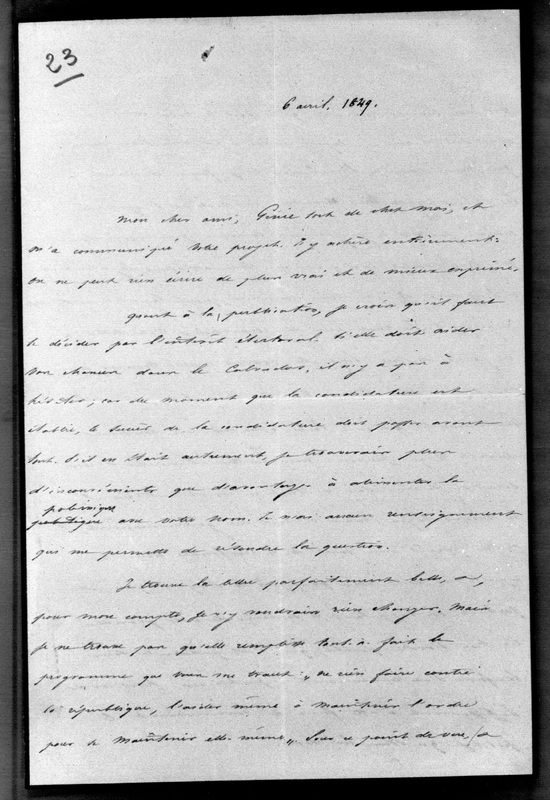 23
6 avril, 1849.
Mon cher ami, Génie sort de chez moi, et
m'a communiqué votre projet. J'y adhère entièrement:
on ne peut rien écrire de plus vrai et de mieux exprimé.
Quant à la publication, je crois qu'il faut
se décider par l'intérêt électoral. Si elle doit aider
vos chances dans le Calvados, il n'y a pas à
hésiter; car du moment que la candidature est
établie, le succès de la candidature doit passer avant
tout. S'il en était autrement, je trouverais plus
d'inconvénients que d'avantages à alimenter la
polémique
avec votre nom. Je n'ai aucun renseignement
qui me permette de résoudre la question.
Je trouve la lettre parfaitement belle, et,
pour mon compte, je n'y voudrais rien changer. Mais
je ne trouve pas qu'elle remplisse tout à fait le
programme que vous me tracez: "ne rien faire contre
la république, l'aider même à maintenir l'ordre
pour se maintenir elle-même". Sous ce point de vue,